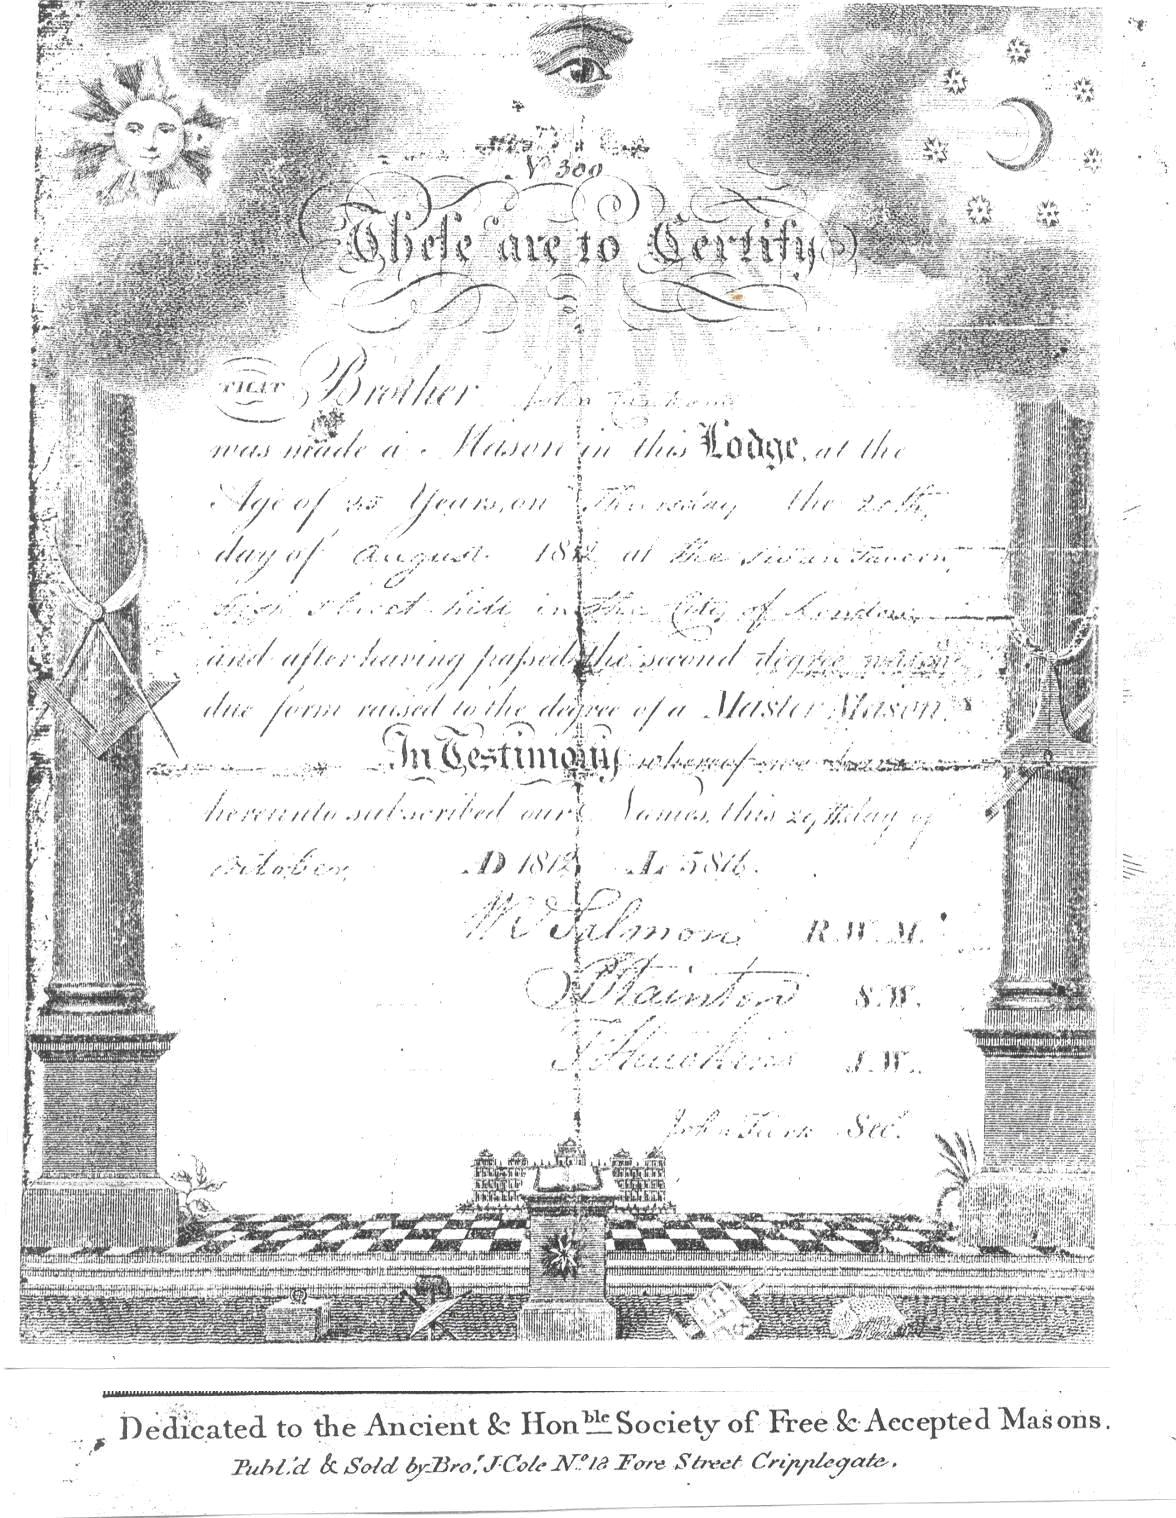 No 300
These are to Certify
THAT Brother John
was made a Mason in this Lodge, at the
Age of 25 Years, on Thursday the 20th
day of August 1812 at the Swan Tavern
Street hill in the City of London
and after having passed the second degree was in
due form raised to the degree of a Master Mason.
In Testimony whereof we have
hereunto subscribed our Names, this 29th day of
October A.D 1812 A.L 5816.
Wm Salmon R.W.M.
Stainton S.W.
J Hawkins J.W.
John Sec.
Dedicated to the Ancient & Honble Society of Free & Accepted Masons.
Publ.'d & Sold by Bro.r J. Cole No. 18 Fore Street Cripplegate.